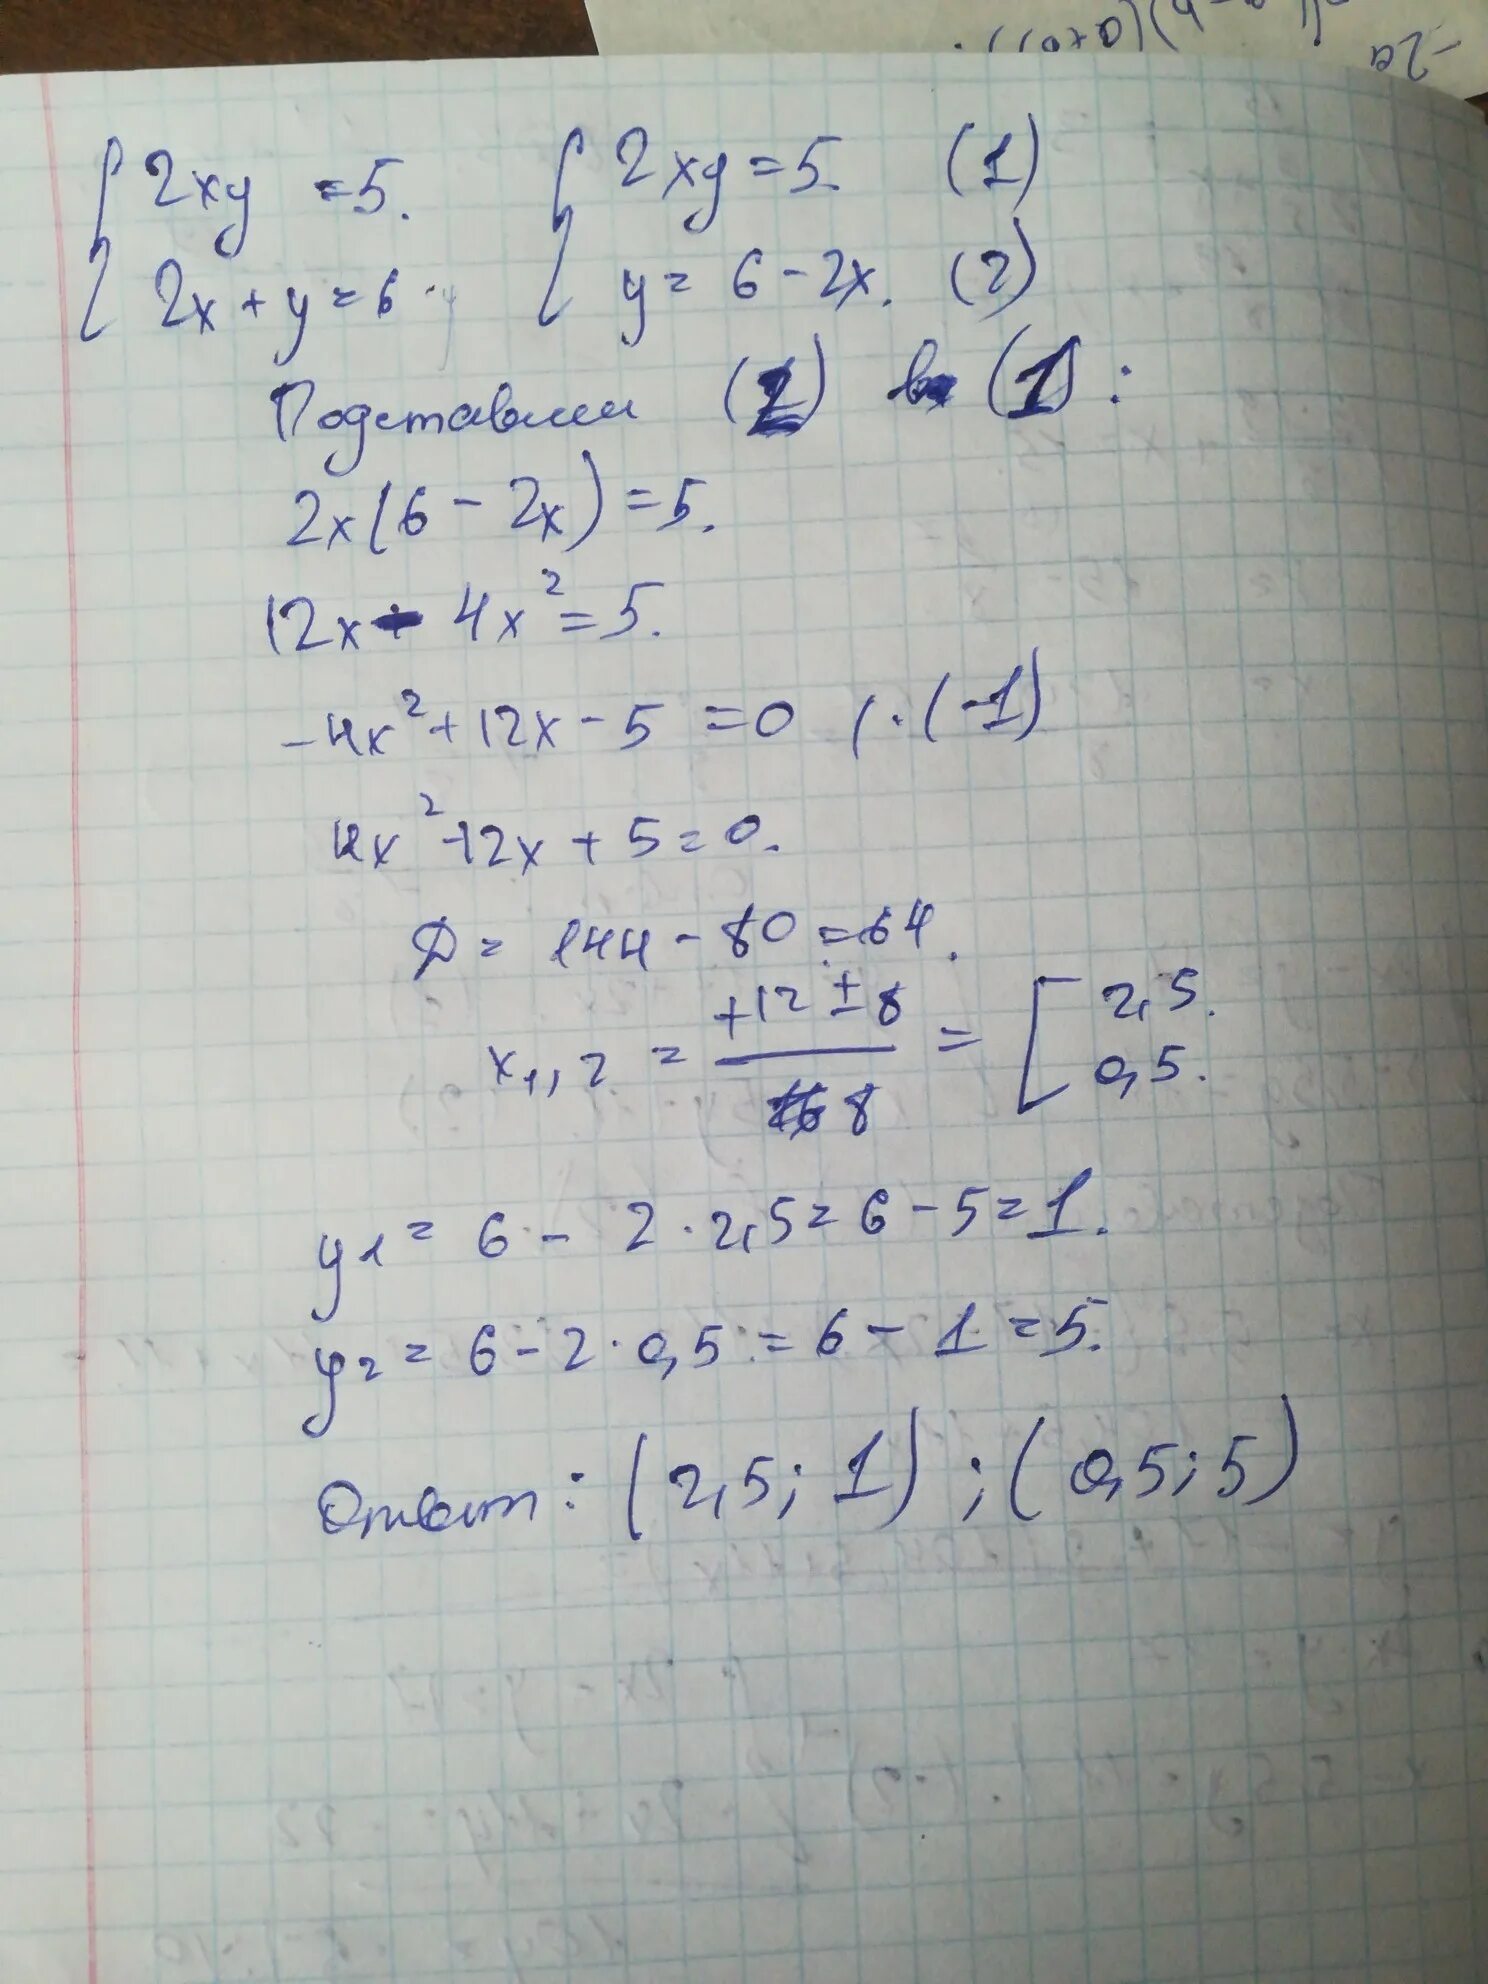 -2a
{ 2xy = 5. { 2xy = 5. (1)
2x + y = 6 y = 6 - 2x. (2)
Подставим (2) в (1):
2x(6 - 2x) = 5.
12x - 4x² = 5.
-4x² + 12x - 5 = 0 | · (-1)
4x² - 12x + 5 = 0.
D = 144 - 80 = 64.
x₁,₂ = (+12 ± 8)/8 = [ 2,5.
0,5.
y₁ = 6 - 2 · 2,5 = 6 - 5 = 1.
y₂ = 6 - 2 · 0,5 = 6 - 1 = 5.
Ответ: (2,5; 1) ; (0,5; 5)